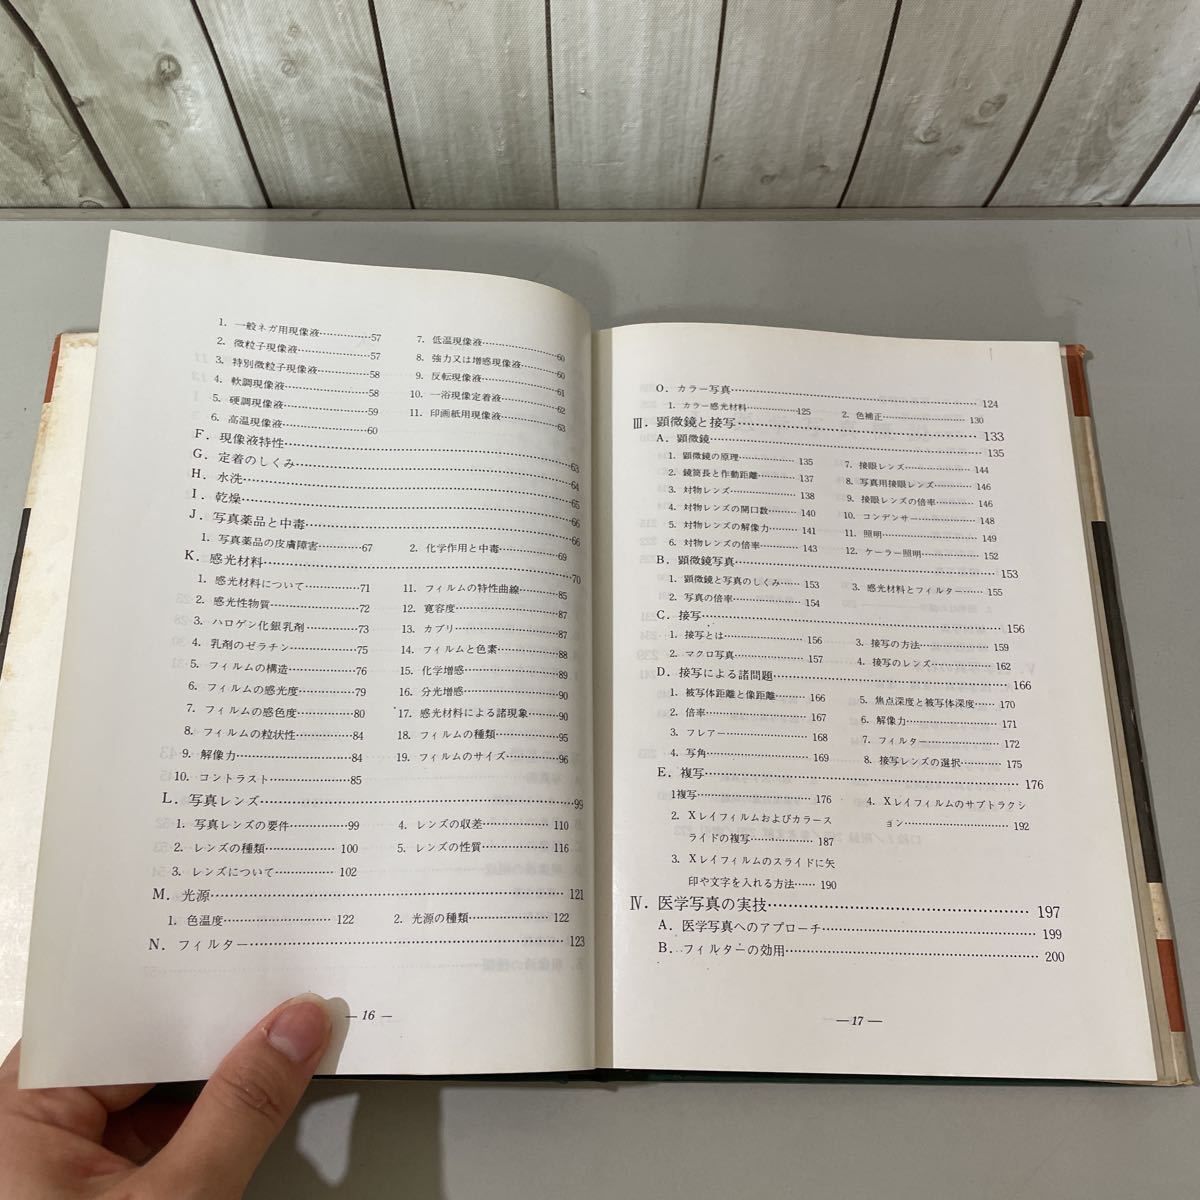 1. 一般ネガ用現像液……………57
2. 微粒子現像液………………57
3. 特別微粒子現像液…………58
4. 軟調現像液…………………58
5. 硬調現像液…………………59
6. 高温現像液…………………60
7. 低温現像液…………………60
8. 強力又は増感現像液………60
9. 反転現像液…………………61
10. 一浴現像定着液……………62
11. 印画紙用現像液……………63
F. 現像液特性……………………63
G. 定着のしくみ…………………64
H. 水洗……………………………65
I. 乾燥……………………………66
J. 写真薬品と中毒………………66
1. 写真薬品の皮膚障害………67
2. 化学作用と中毒……………69
K. 感光材料………………………70
1. 感光材料について…………71
2. 感光性物質…………………72
3. ハロゲン化銀乳剤…………73
4. 乳剤のゼラチン……………75
5. フィルムの構造……………76
6. フィルムの感光度…………79
7. フィルムの感色度…………80
8. フィルムの粒状性…………84
9. 解像力………………………84
10. コントラスト………………85
11. フィルムの特性曲線………85
12. 寛容度………………………87
13. カブリ………………………87
14. フィルムと色素……………88
15. 化学増感……………………90
16. 分光増感……………………90
17. 感光材料による諸現象……90
18. フィルムの種類……………95
19. フィルムのサイズ…………96
L. 写真レンズ……………………99
1. 写真レンズの要件…………99
2. レンズの種類………………100
3. レンズについて……………102
4. レンズの収差………………110
5. レンズの性質………………116
M. 光源……………………………121
1. 色温度………………………122
2. 光源の種類…………………122
N. フィルター……………………123
— 16 —
O. カラー写真……………………124
1. カラー感光材料……………125
2. 色補正………………………130
Ⅲ. 顕微鏡と接写…………………133
A. 顕微鏡…………………………135
1. 顕微鏡の原理………………135
2. 鏡筒長と作動距離…………137
3. 対物レンズ…………………138
4. 対物レンズの開口数………140
5. 対物レンズの解像力………141
6. 対物レンズの倍率…………143
7. 接眼レンズ…………………144
8. 写真用接眼レンズ…………146
9. 接眼レンズの倍率…………146
10. コンデンサー………………148
11. 照明…………………………149
12. ケーラー照明………………152
B. 顕微鏡写真……………………153
1. 顕微鏡と写真のしくみ……153
2. 写真の倍率…………………154
3. 感光材料とフィルター……155
C. 接写……………………………156
1. 接写とは……………………156
2. マクロ写真…………………157
3. 接写の方法…………………159
4. 接写のレンズ………………162
D. 接写による諸問題……………166
1. 被写体距離と像距離………166
2. 倍率…………………………167
3. フレアー……………………168
4. 写角…………………………169
5. 焦点深度と被写体深度……170
6. 解像力………………………171
7. フィルター…………………172
8. 接写レンズの選択…………175
E. 複写……………………………176
1複写…………………………176
2. Xレイフィルムおよびカラース
ライドの複写………………187
3. Xレイフィルムのスライドに矢
印や文字を入れる方法……190
4. Xレイフィルムのサブトラクシ
ョン…………………………192
Ⅳ. 医学写真の実技………………197
A. 医学写真へのアプローチ……199
B. フィルターの効用……………200
— 17 —